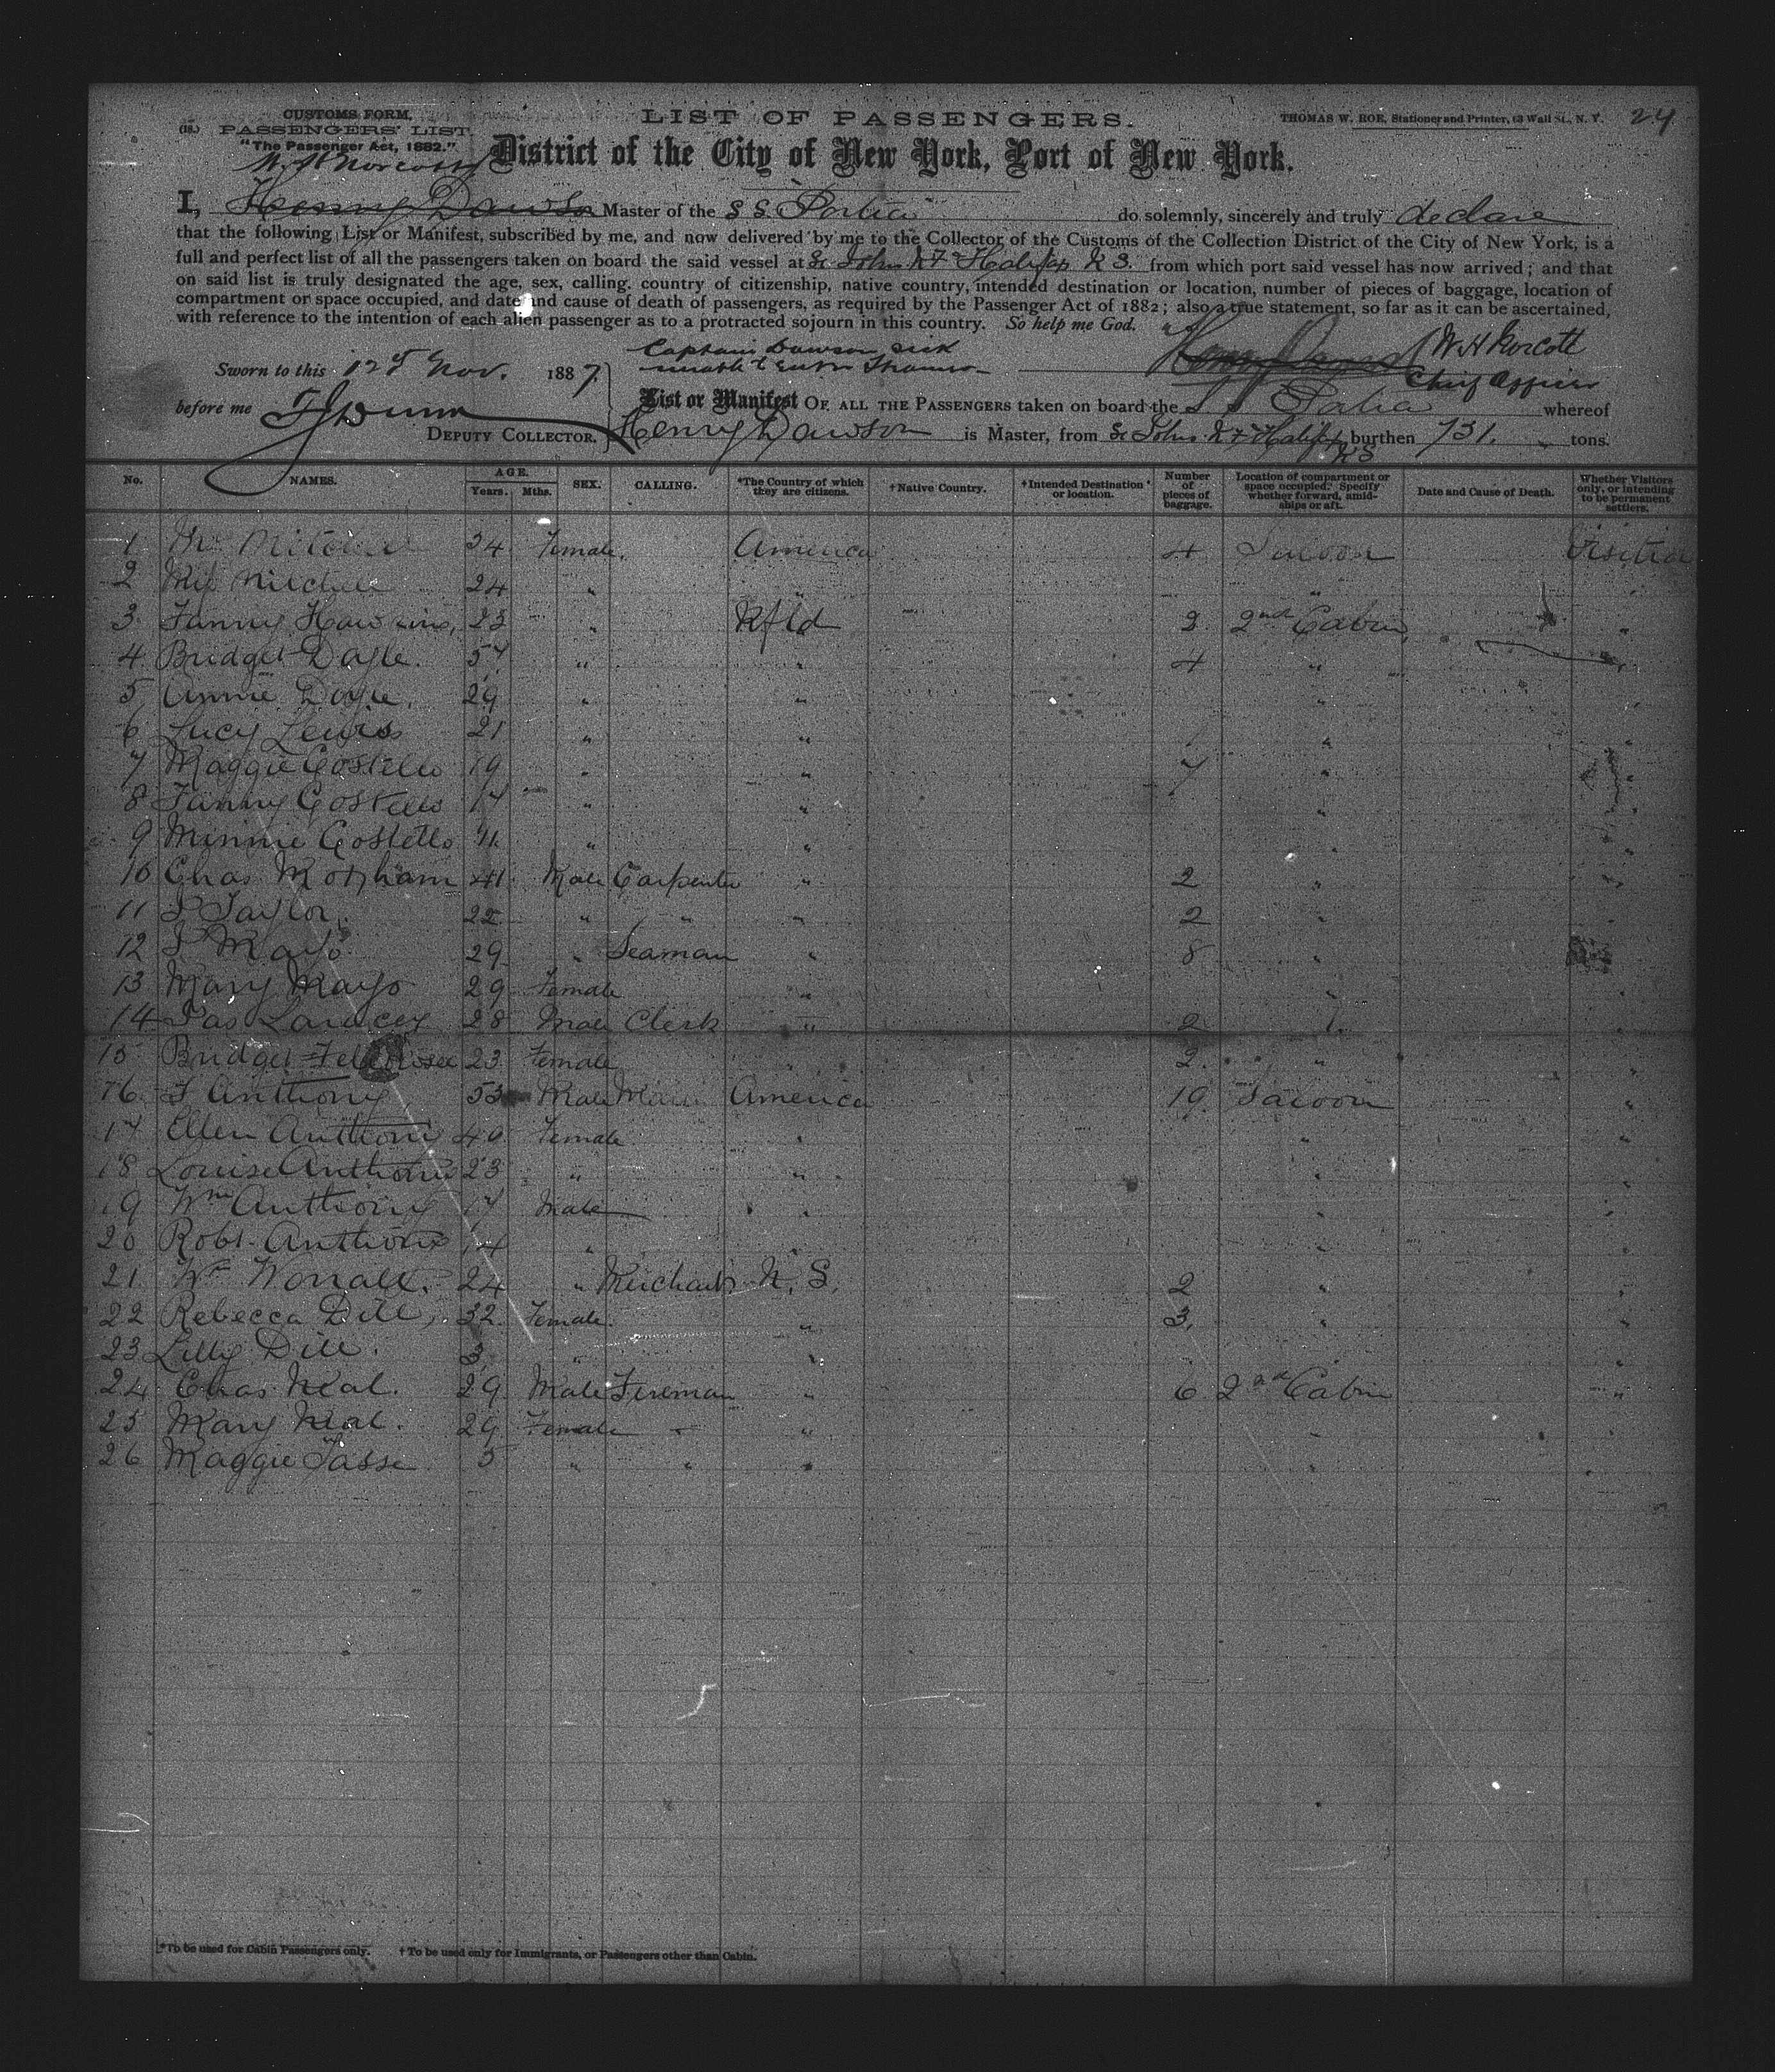 CUSTOMS FORM.
(18.) PASSENGERS' LIST.
"The Passenger Act, 1882."
LIST OF PASSENGERS.
THOMAS W. ROE, Stationer and Printer, 13 Wall St., N. Y. 24
District of the City of New York, Port of New York.
W. H. Norcott
I, Henry Dawson Master of the S S. Portia do solemnly, sincerely and truly declare
that the following List or Manifest, subscribed by me, and now delivered by me to the Collector of the Customs of the Collection District of the City of New York, is a
full and perfect list of all the passengers taken on board the said vessel at St Johns N F & Halifax N S. from which port said vessel has now arrived; and that
on said list is truly designated the age, sex, calling, country of citizenship, native country, intended destination or location, number of pieces of baggage, location of
compartment or space occupied, and date and cause of death of passengers, as required by the Passenger Act of 1882; also a true statement, so far as it can be ascertained,
with reference to the intention of each alien passenger as to a protracted sojourn in this country. So help me God.
Captain Dawson sick
unable to enter Steamer
Henry Dawson W H Norcott
Chief Officer
Sworn to this 12th Nov. 1887.
before me
DEPUTY COLLECTOR.
List or Manifest OF ALL THE PASSENGERS taken on board the S S Portia whereof
Henry Dawson is Master, from St Johns N F & Halifax N S burthen 731. tons.
No. NAMES. AGE. Years. Mths. SEX. CALLING. *The Country of which they are citizens. †Native Country. †Intended Destination or location. Number of pieces of baggage. Location of compartment or space occupied. Specify whether forward, amidships or aft. Date and Cause of Death. Whether Visitors only, or intending to be permanent settlers.
1 Mitchell 34 Female. America 4 Saloon
2 Miss Mitchell 24 " " "
3 Fanny Hawkins, 23 " Nfld 2 2nd Cabin "
4 Bridget Doyle. 57 " " 4 " "
5 Annie Doyle. 29 " "
6 Lucy Lewis 21 " " " "
7 Maggie Costello 19 " " 7 " "
8 Fanny Costello 17 " " " "
9 Minnie Costello 11 " " " "
10 Chas 41 Male Carpenter " 2 " "
11 Taylor. 22 " " " 2 "
12 Mayo 29 " Seaman " 8 "
13 Mary Mayo 29 Female " " "
14 Jas 28 Male Clerk " 2 "
15 Bridget 23 Female " 2. "
16 Anthony 53 Male America 19 Saloon "
17 Ellen Anthony 49 Female " " "
18 Louise Anthony 23 " " " "
19 Wm Anthony 17 Male " " "
20 Robt. Anthony 14 " " "
21 Wm Worrall. 24 " Merchant N. S. 2 " "
22 Rebecca Dill, 32 Female. " 3. " "
23 Lilly Dill. 3 " " " "
24 Chas Neal. 29 Male Fireman " 6 2nd Cabin "
25 Mary Neal. 29 Female " " "
26 Maggie 5 " " " " "
*To be used for Cabin Passengers only. †To be used only for Immigrants, or Passengers other than Cabin.